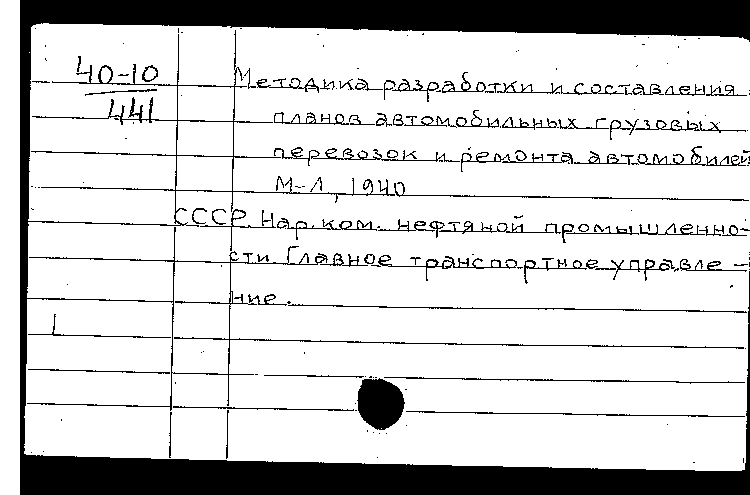 40-10
441
Методика разработки и составления
планов автомобильных грузовых
перевозок и ремонта автомобилей
М-Л, 1940
СССР. Нар. ком. нефтяной промышленно-
сти. Главное транспортное управле-
ние.